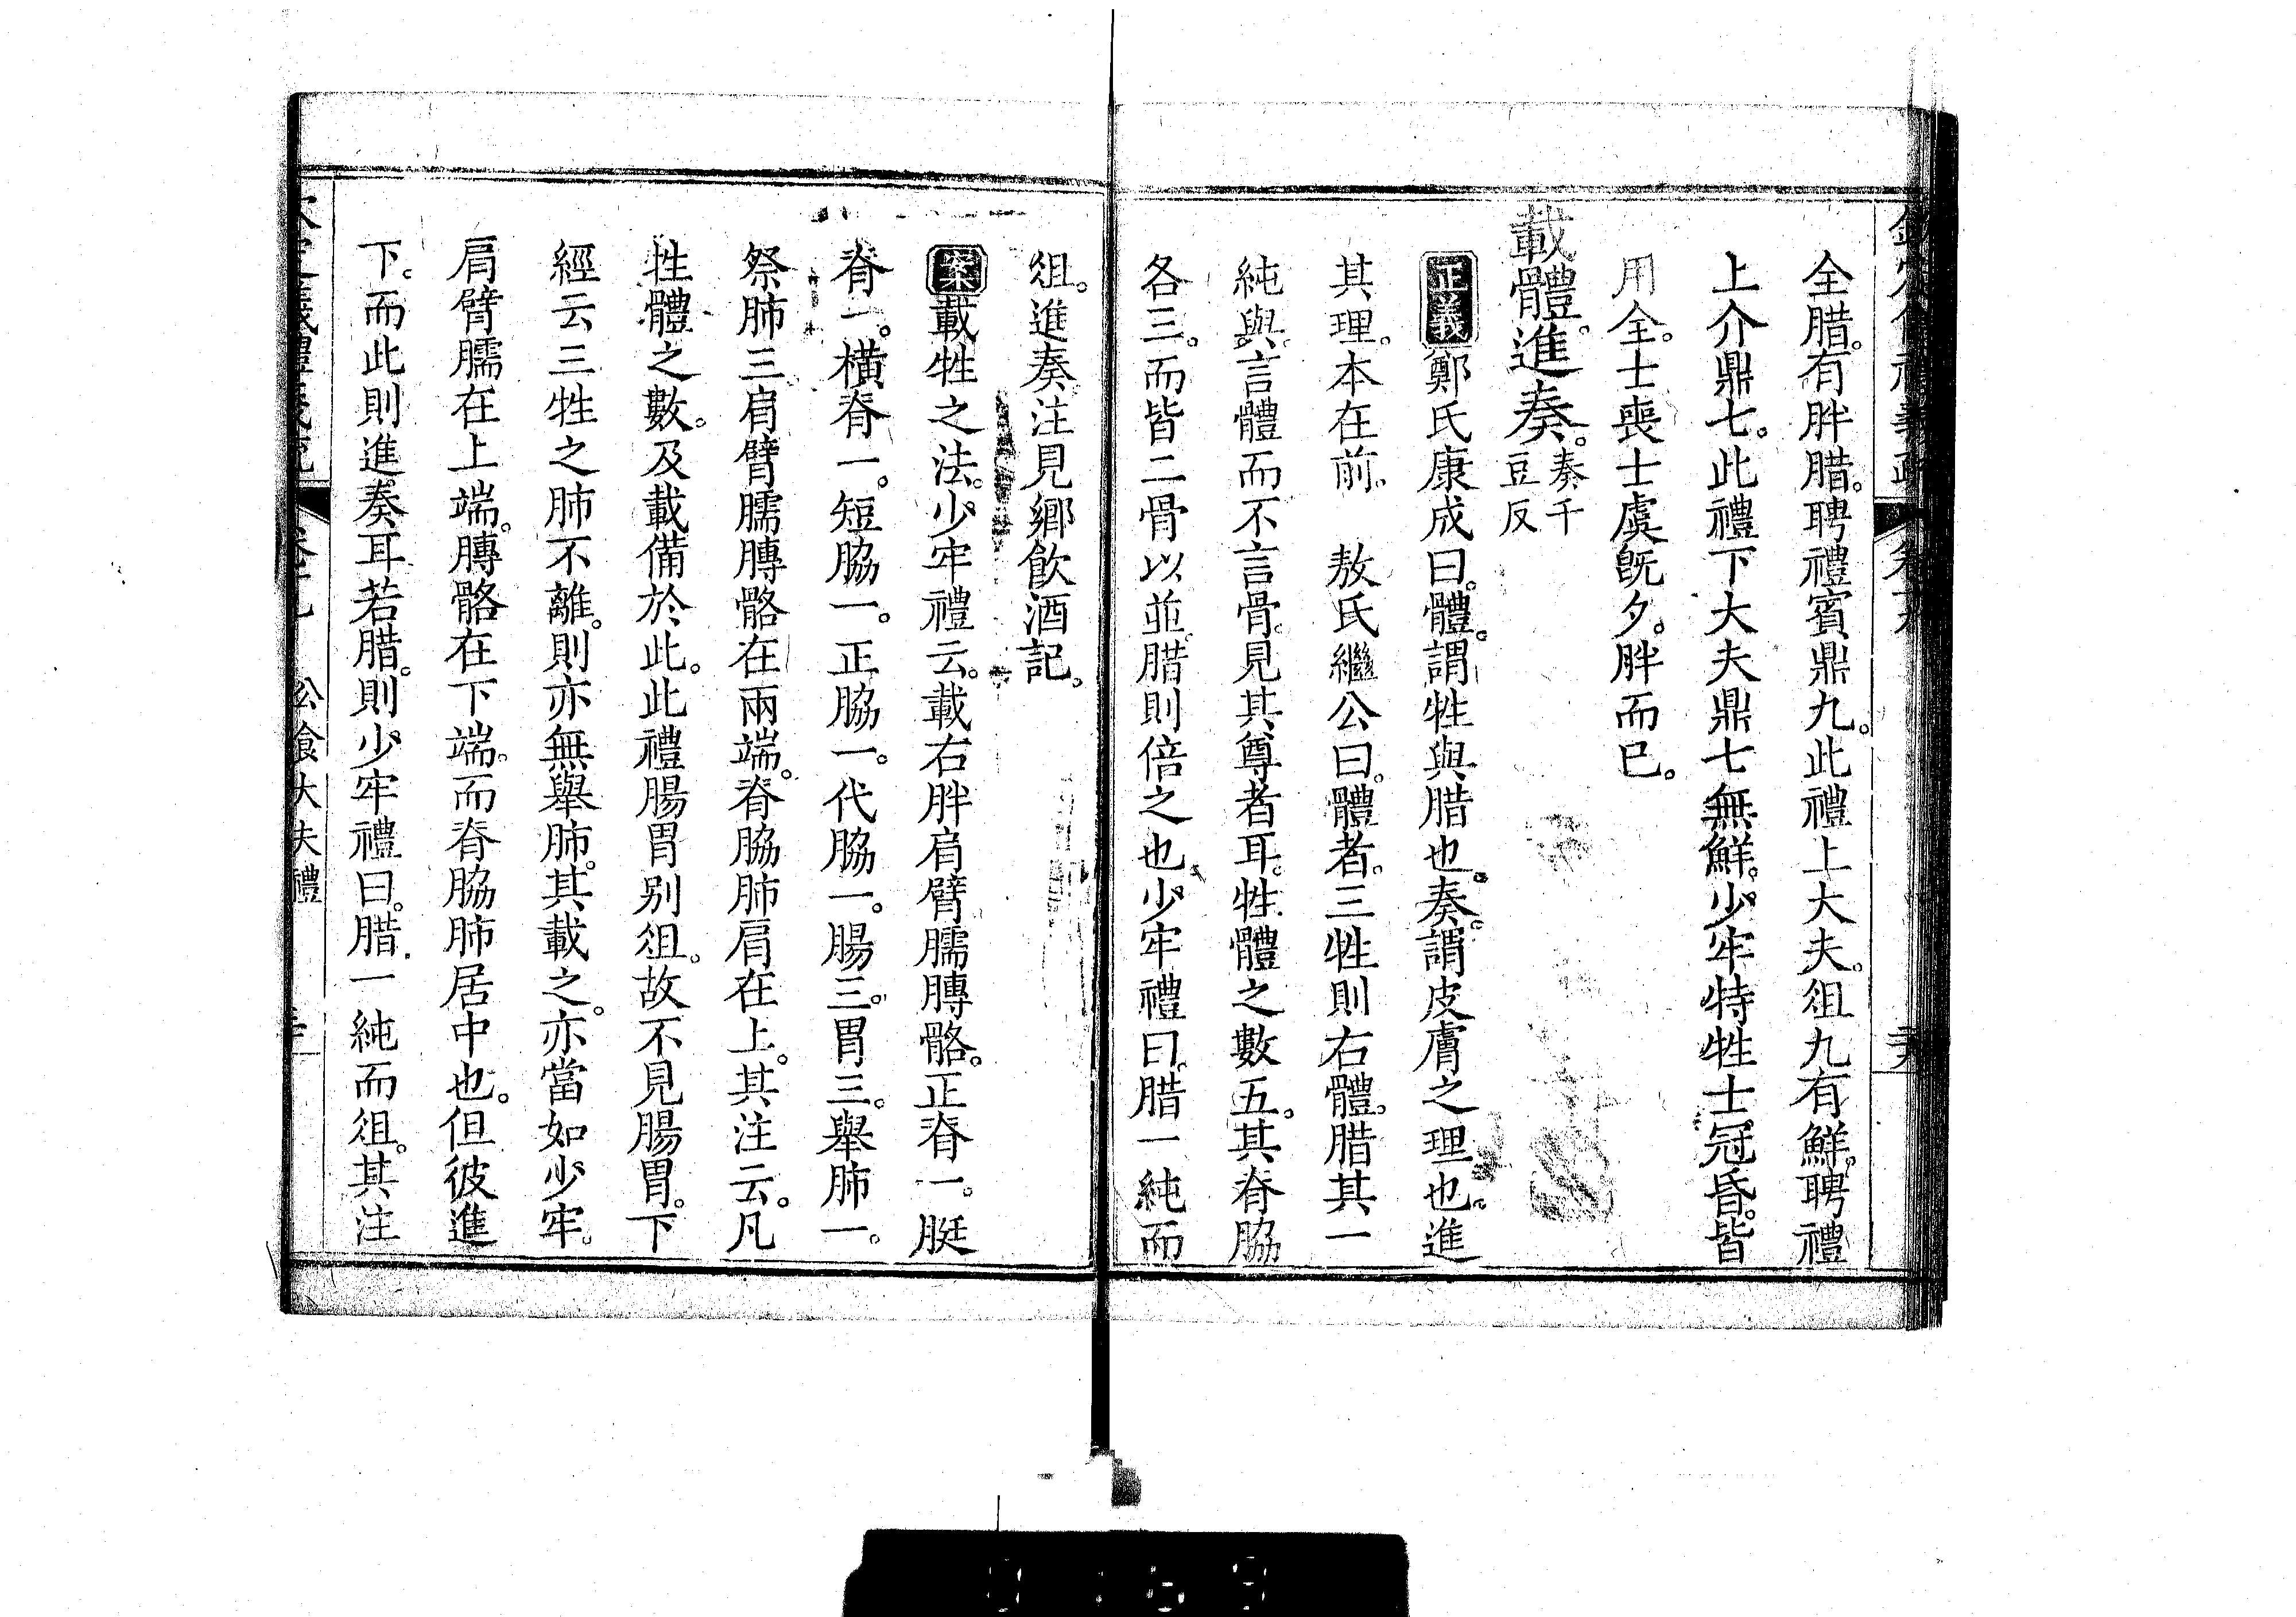 全腊。有胖腊。聘禮賓鼎九。此禮上大夫。俎九有鮮。聘禮
上介鼎七。此禮下大夫鼎七無鮮。少牢特牲士冠昏。皆
用全。士喪士虞旣夕。胖而已。
載體。進奏。奏千豆反
正義鄭氏康成曰。體。謂牲與腊也。奏。謂皮膚之理也。進
其理。本在前。 敖氏繼公曰。體者。三牲則右體。腊其一
純與。言體而不言骨。見其尊者耳。牲體之數五。其脊脇
各三。而皆二骨以並。腊則倍之也。少牢禮曰。腊一純而
俎。進奏注見鄉飮酒記。
案載牲之法。少牢禮云。載右胖肩臂臑膊骼。正脊一。脡
脊一。橫脊一。短脇一。正脇一。代脇一。腸三。胃三。舉肺一。
祭肺三肩臂臑膊骼在兩端。脊脇肺肩在上。其注云。凡
牲體之數。及載備於此。此禮腸胃别俎。故不見腸胃。下
經云三牲之肺不離。則亦無舉肺。其載之。亦當如少牢。
肩臂臑在上端。膊骼在下端。而脊脇肺居中也。但彼進
下。而此則進奏耳若腊。則少牢禮曰。腊一純而俎。其注
公食大夫禮